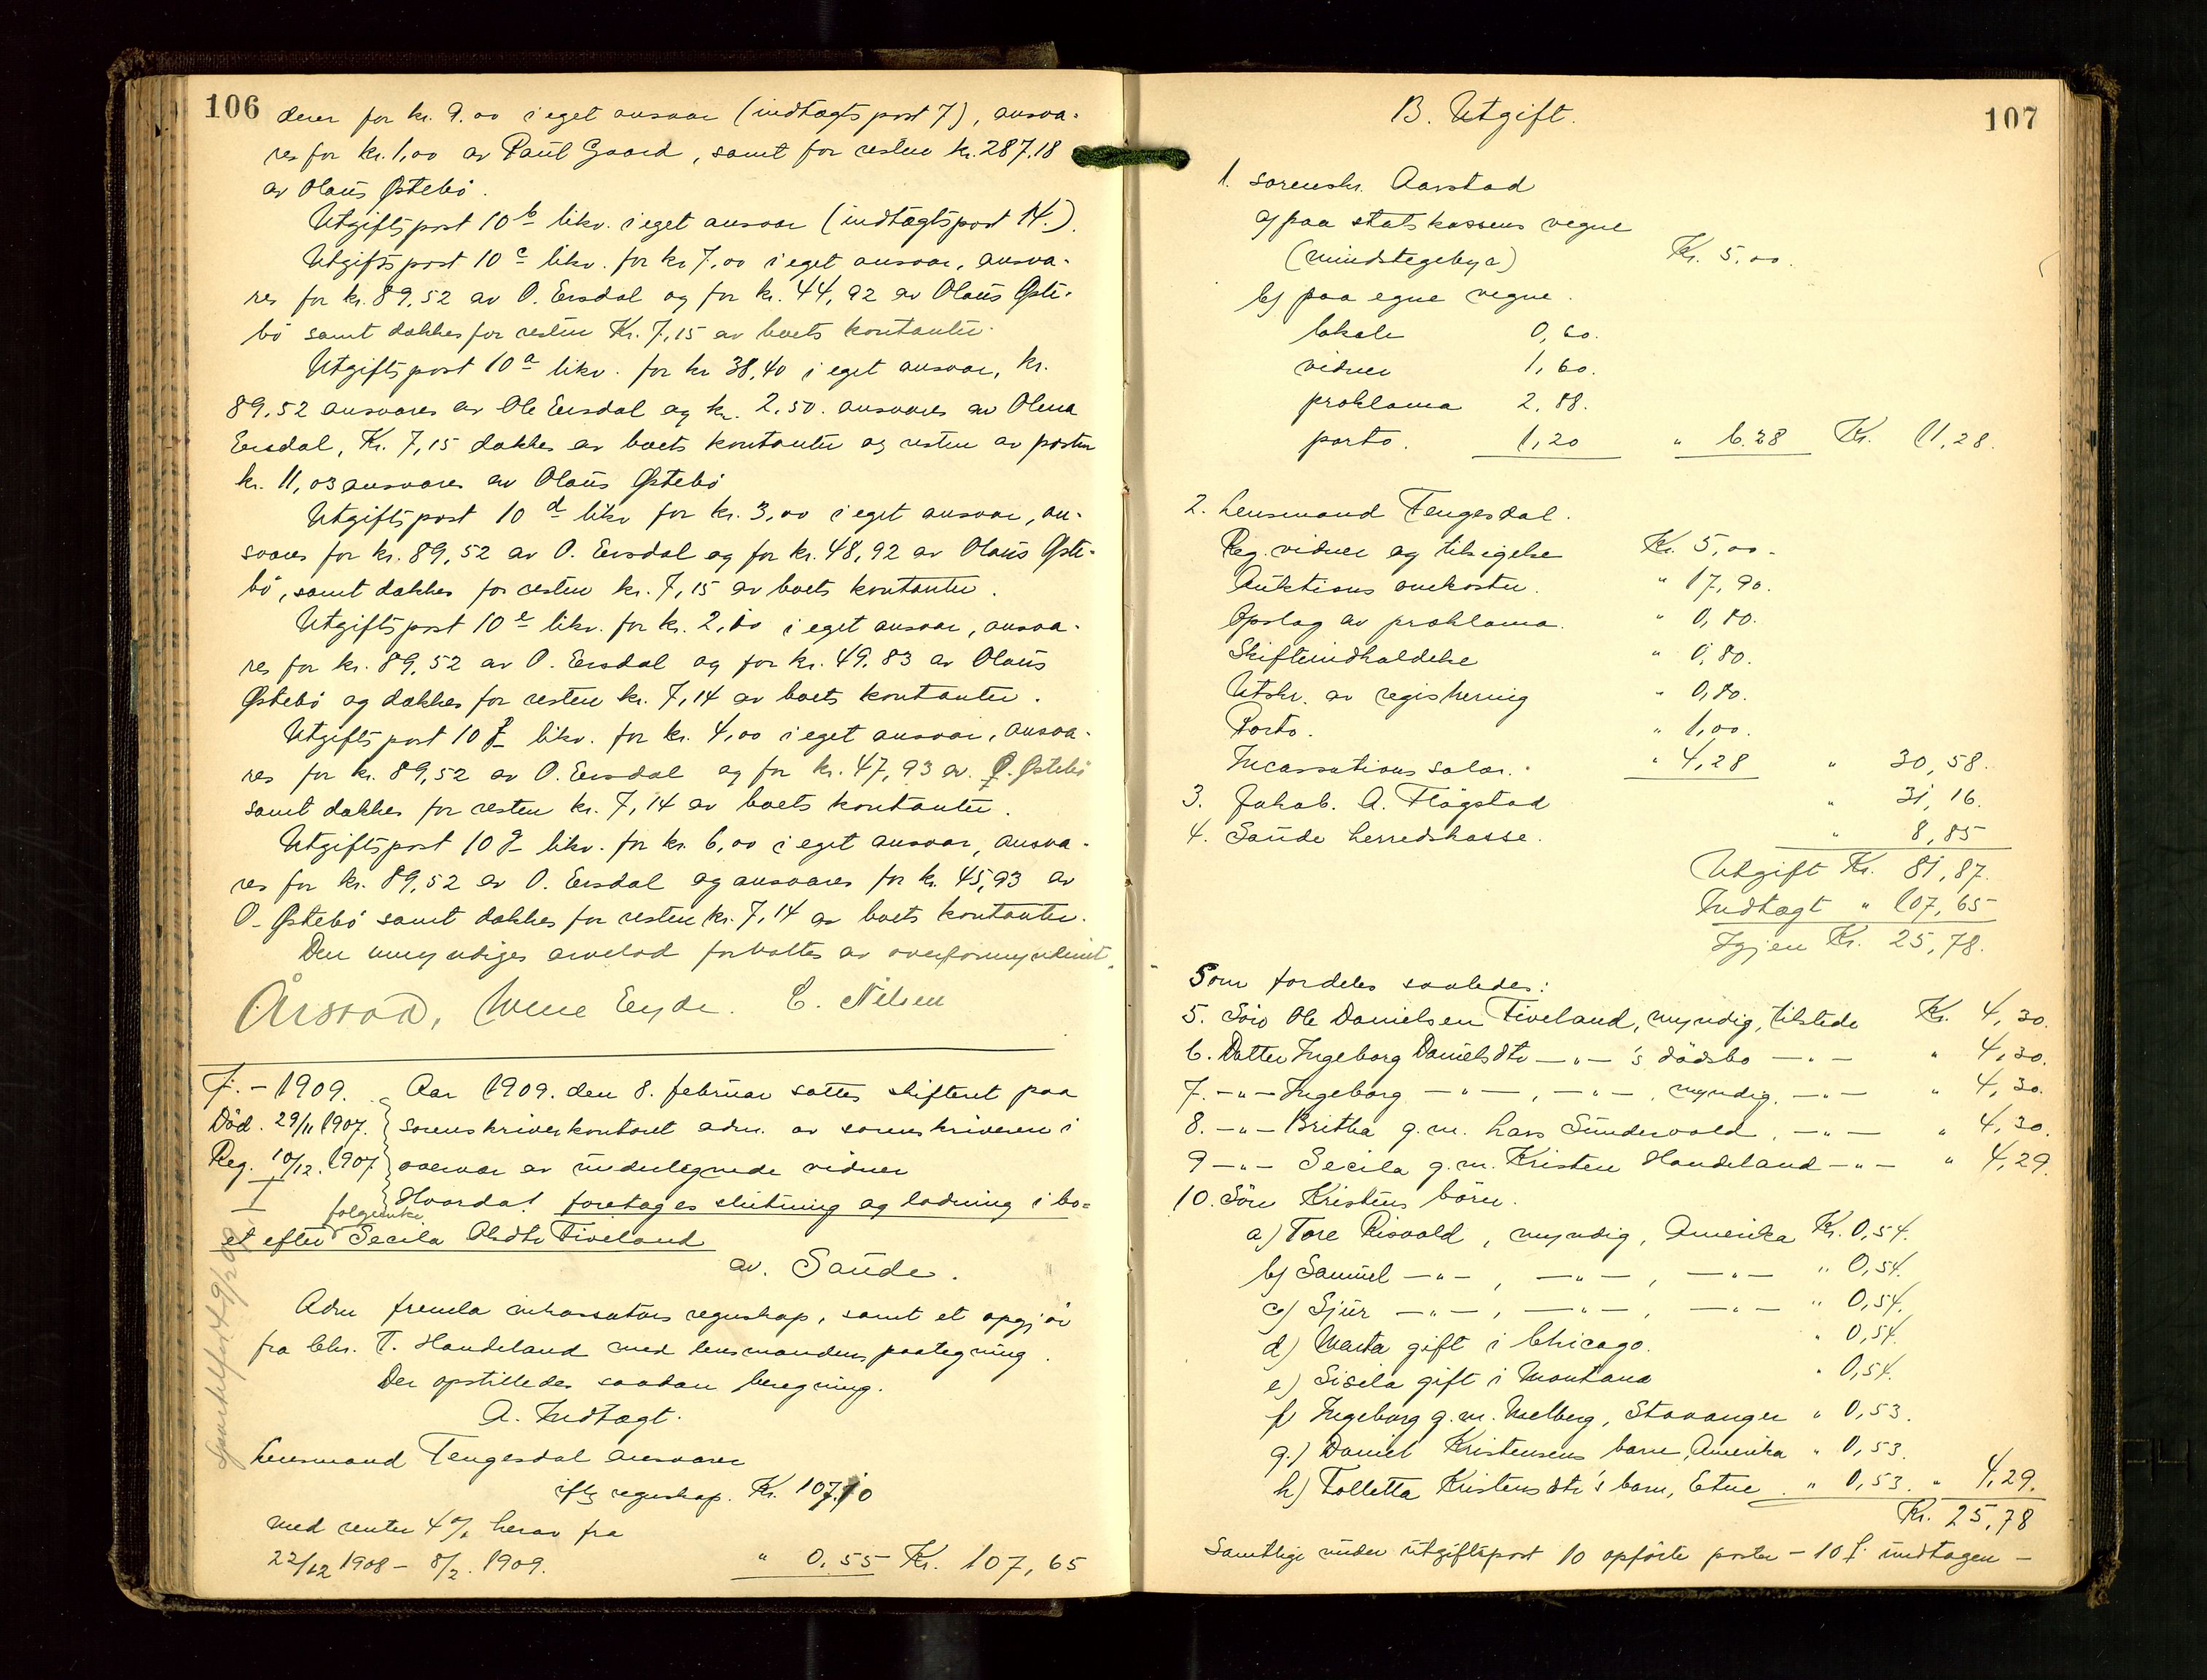 106
derer for kr. 9.00 i eget ansvar (indtægtspost 7), ansva-
res for kr. 1,00 av Paul Gaard, samt for resten kr. 287.18
av Olaus Østebö.
Utgiftspost 10 b likv. i eget ansvar (indtægtspost 14.).
Utgiftspost 10 c likv. for kr 7,00 i eget ansvar, ansva-
res for kr. 89,52 av O. Eersdal og for kr. 44,92 av Olaus Øste-
bö samt dækkes for resten Kr. 7,15 av boets kontanter.
Utgiftspost 10 a likv. for kr 38,40 i eget ansvar, kr.
89,52 ansvares av Ole Eersdal og kr. 2,50. ansvares av Olena
Eersdal, Kr. 7,15 dækkes av boets kontanter og resten av posten
kr. 11,03 ansvares av Olaus Østebö
Utgiftspost 10 d likv for kr. 3,00 i eget ansvar, an-
svares for kr. 89,52 av O. Eersdal og for kr. 48,92 av Olaus Øste-
bö, samt dækkes for resten kr. 7,15 av boets kontanter.
Utgiftspost 10 e likv. for kr. 2,10 i eget ansvar, ansva-
res for kr. 89,52 av O. Eersdal og for kr. 49,83 av Olaus
Østebö og dækkes for resten kr. 7,14 av boets kontanter.
Utgiftspost 10 f likv. for kr. 4,00 i eget ansvar, ansva-
res for kr. 89,52 av O. Eersdal og for kr. 47,93 av O. Østebö
samt dækkes for resten kr. 7,14 av boets kontanter.
Utgiftspost 10 g likv. for kr. 6,00 i eget ansvar, ansva-
res for kr. 89,52 av O. Eersdal og ansvares for kr. 45,93 av
O. Østebö samt dækkes for resten kr. 7,14 av boets kontanter.
Den umyndiges arvelod forvaltes av overformynderiet.
Årstad, Eeyde. C. Nilsen
7. - 1909. Aar 1909. den 8. februar sattes skifteret paa
Död. 29/11 1907. sorenskriverkontoret adm. av sorenskriveren i
Reg. 10/12. 1907 overvær av undertegnede vidner
I Hvorda! foretoges slutning og lodning i bo-
et efter følgeenke Secila Olsdtr Tiveland
av. Saude.
Adm fremla inkassators regnskap, samt et opgjör
fra lehr. T. Handeland med lensmandens paategning.
Der opstilledes saadan beregning.
A. Indtægt.
Lensmand Tengesdal ansvarer
iflg regnskap. Kr. 107.10
med renter 4% herav fra
22/12 1908 - 8/2. 1909. " 0,55 Kr. 107,65
107
B. Utgift.
1. sorenskr. Aarstad
a) paa statskassens vegne
(mindstegebyr) Kr. 5,00.
b) paa egne vegne.
lokale 0,60.
vidner 1,60.
proklama 2,88.
porto. 1,20 " 6.28 Kr. 11,28.
2. Lensmand Tengesdal.
Reg. vidner og tilsigelse Kr. 5,00.
Auktions omkoster. " 17,90.
Opslag av proklama. " 0,80.
Skifteindkaldelse " 0,80.
Utskr. av registrering " 0,80.
Porto. " 1,00.
Incassations salær. " 4,28 " 30,58.
3. Jakob. A. Flögstad " 31,16.
4. Saude herredskasse. " 8,85
Utgift Kr. 81,87.
Indtægt " 107,65
Igjen Kr. 25,78.
Som fordeles saaledes:
5. Sön Ole Danielsen Tiveland, myndig, tilstede Kr. 4,30.
6. Datter Ingeborg Danielsdtr - " - 's dödsbo - " - " 4,30.
7. - " - Ingeborg - " - , - " - , myndig, - " - " 4,30.
8. - " - Britha g.m. Lars Sunderold, - " - " 4,30.
9 - " - Secila g.m. Kristen Handeland - " - " 4,29.
10. Sön Kristens börn.
a) Tore Risvold, myndig, Amerika Kr. 0,54.
b) Samuel - " - , - " - , - " - " 0,54.
c) Sjur - " - , - " - , - " - " 0,54.
d) Marta gift i Chicago. " 0,54.
e) Sisila gift i Montana " 0,54.
f) Ingeborg g.m. Melberg, Stavanger " 0,53.
g.) Daniel Kristensens barn, Amerika " 0,53.
h) Tolletta Kristensdtr's barn, Etne. " 0,53. " 4,29.
Kr. 25,78
Samtlige under utgiftspost 10 opförte poster - 10 f. undtagen -